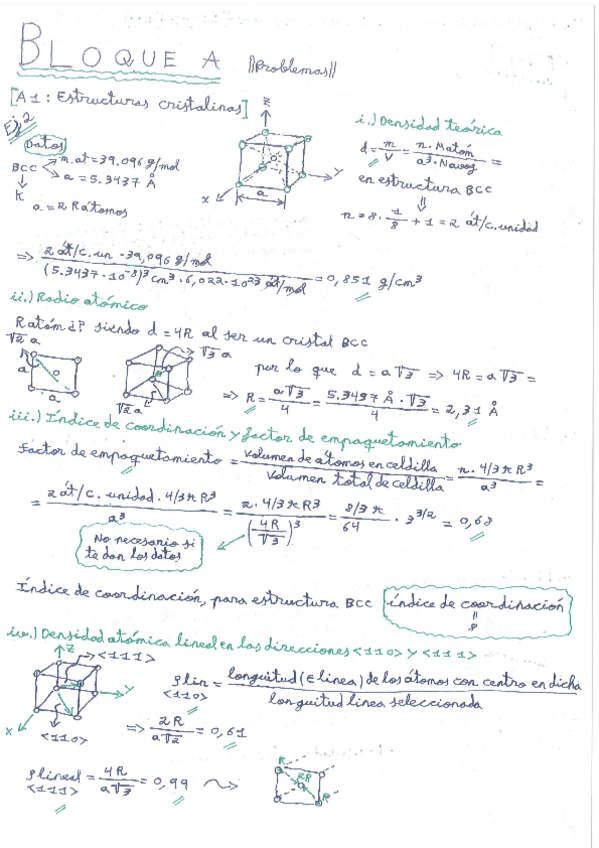 BLOQUE A ||Problemas||
[A1: Estructuras cristalinas]
Ej 2
Datos
BCC
m.at = 39.096 g/mol
a = 5.3437 Å
K
a = 2 Rátomos
z
y
x
a
i.) Densidad teórica
d = m/V = n. Matóm / a³. Navog =
en estructura BCC
n = 8 · 1/8 + 1 = 2 át/c.unidad
=> 2 át/c.un · 39,096 g/mol / (5.3437 · 10⁻⁸)³ cm³ · 6,022 · 10²³ át/mol = 0,851 g/cm³
ii.) Radio atómico
Ratóm ¿? siendo d = 4R al ser un cristal BCC
√2 a
R
a
a
√3 a
√2 a
por lo que d = a√3 => 4R = a√3 =
=> R = a√3 / 4 = 5.3437 Å · √3 / 4 = 2,31 Å
iii.) Índice de coordinación y factor de empaquetamiento
factor de empaquetamiento = Volumen de átomos en celdilla / Volumen total de celdilla = n. 4/3 π R³ / a³ =
= 2 át/c. unidad. 4/3 π R³ / a³ = 2. 4/3 π R³ / (4R/√3)³ = 8/3 π / 64 · 3^3/2 = 0,68
No necesario si
te dan los datos
Índice de coordinación, para estructura BCC índice de coordinación
=
8
iv.) Densidad atómica lineal en las direcciones <110> y <111>
z
<111>
y
x
<110>
ρlin = longuitud (∈ linea) de los átomos con centro en dicha / longuitud linea seleccionada
<110>
=> 2R / a√2 = 0,61
ρlineal = 4R / a√3 = 0,99
<111>
R
2R
R